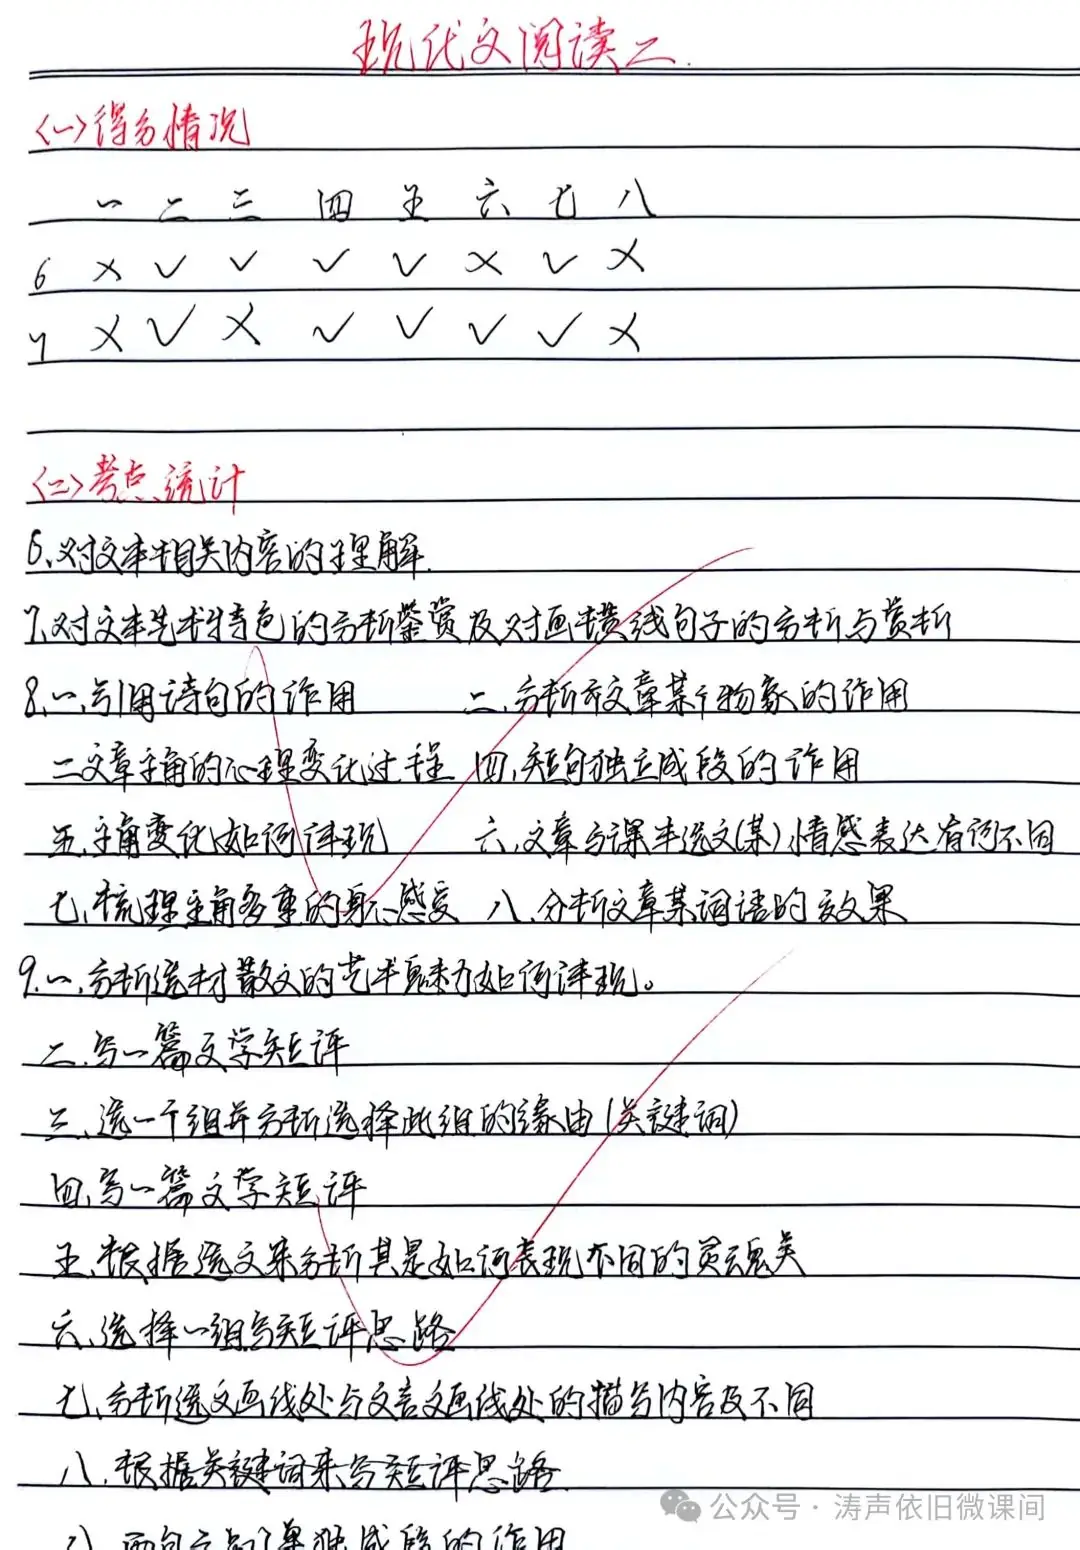 现代文阅读二.
<一>得分情况
一 二 三 四 五 六 七 八
6 × ✓ ✓ ✓ ✓ × ✓ ×
7 × ✓ × ✓ ✓ ✓ ✓ ×
<二>考点统计
6、对文本相关内容的理解.
7.对文本艺术特色的分析鉴赏及对画横线句子的分析与赏析
8.一.引用诗句的作用 二.分析文章某个物象的作用
二文章主角的心理变化过程 四.短句独立成段的作用
五.主角变化如何体现 六.文章与课本选文(某)情感表达有何不同
七.梳理主角多重的身心感受 八.分析文章某词语的效果
9.一.分析选材散文的艺术魅力如何体现。
二.写一篇文学短评
三.选一个组并分析选择此组的缘由(关键词)
四.写一篇文学短评
五.根据选文来分析其是如何表现不同的灵魂美
六.选择一组写短评思路
七.分析选文画线处与文言文画线处的描写内容及不同
八.根据关键词来写短评思路
公众号·涛声依旧微课间